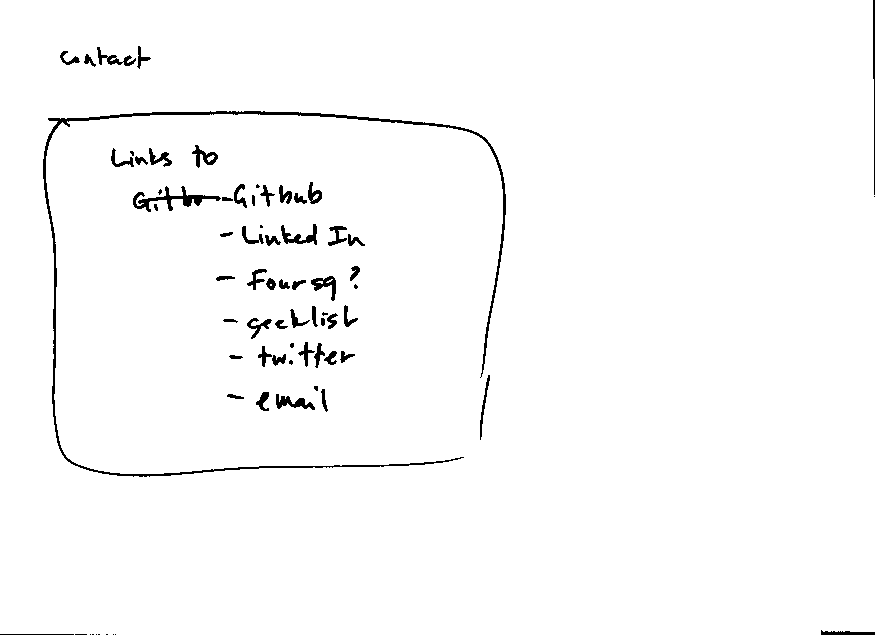 contact
Links to
Githu - Github
- Linked In
- Foursq?
- geeklist
- twitter
- email